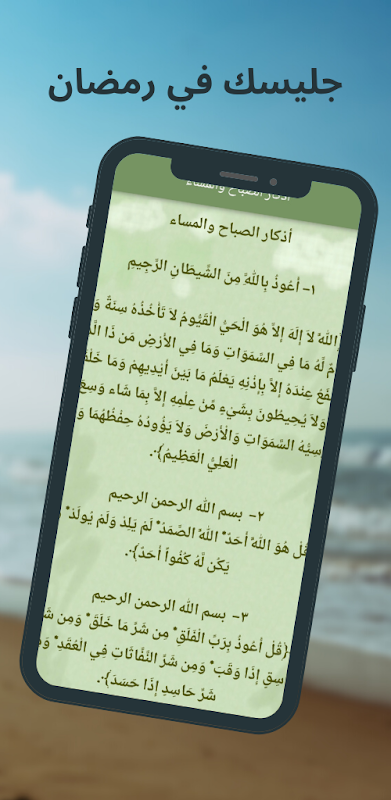 جليسك في رمضان
أذكار الصباح والمساء
أذكار الصباح والمساء
١- أعوذُ بِاللهِ مِنَ الشَّيطَانِ الرَّجِيمِ
اللهُ لاَ إِلَهَ إِلاَّ هُوَ الْحَيُّ الْقَيُّومُ لاَ تَأْخُذُهُ سِنَةٌ وَ
مٌ لَّهُ مَا فِي السَّمَوَاتِ وَمَا فِي الأَرْضِ مَن ذَا الَّ
فَعُ عِنْدَهُ إِلاَّ بِإِذْنِهِ يَعْلَمُ مَا بَيْنَ أَيْدِيهِمْ وَمَا خَلْفَ
وَلاَ يُحِيطُونَ بِشَيْءٍ مِّنْ عِلْمِهِ إِلاَّ بِمَا شَاء وَسِعَ
سِيُّهُ السَّمَوَاتِ وَالأَرْضَ وَلاَ يَؤُودُهُ حِفْظُهُمَا وَ
الْعَلِيُّ الْعَظِيمُ}.
٢- بسم الله الرحمن الرحيم
قُلْ هُوَ اللهُ أَحَدٌ* اللهُ الصَّمَدُ* لَمْ يَلِدْ وَلَمْ يُولَدْ*
يَكُن لَّهُ كُفُواً أَحَدٌ}.
٣- بسم الله الرحمن الرحيم
{قُلْ أَعُوذُ بِرَبِّ الْفَلَقِ* مِن شَرِّ مَا خَلَقَ* وَمِن شَ
سِقٍ إِذَا وَقَبَ* وَمِن شَرِّ النَّفَّاثَاتِ فِي الْعُقَدِ* وَمِ
شَرِّ حَاسِدٍ إِذَا حَسَدَ}.